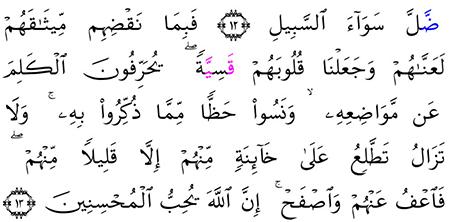 ضَّلَّ سَوَآءَ ٱلسَّبِيلِ ١٢ فَبِمَا نَقْضِهِم مِّيثَٰقَهُمْ
لَعَنَّٰهُمْ وَجَعَلْنَا قُلُوبَهُمْ قَسِيَّةً ۖ يُحَرِّفُونَ ٱلْكَلِمَ
عَن مَّوَاضِعِهِۦ ۙ وَنَسُوا۟ حَظًّا مِّمَّا ذُكِّرُوا۟ بِهِۦ ۚ وَلَا
تَزَالُ تَطَّلِعُ عَلَىٰ خَآئِنَةٍ مِّنْهُمْ إِلَّا قَلِيلًا مِّنْهُمْ ۖ
فَٱعْفُ عَنْهُمْ وَٱصْفَحْ ۚ إِنَّ ٱللَّهَ يُحِبُّ ٱلْمُحْسِنِينَ ١٣